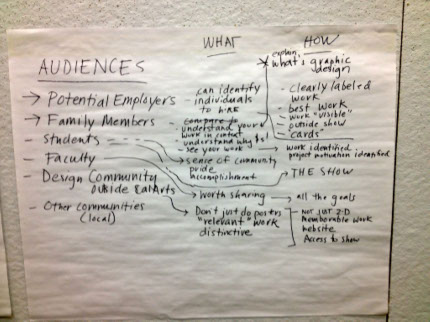 WHAT
HOW
AUDIENCES
→ Potential Employers
→ Family Members
- Students
- Faculty
- Design Community
outside
- Other communities
(local)
can identify
individuals
to HIRE
- compare to
understand your
work in context
understand why $s!
- see your work
sense of community
pride
accomplishment
worth sharing
Don't just do posters
"relevant" work
distinctive
explain
what is graphic
design
- clearly labeled
work
- best work
- work "visible"
outside show
- cards
→ work identified
project motivation identified
THE SHOW
→ all the goals
- NOT JUST 2-D
Memborable work
website
Access to show